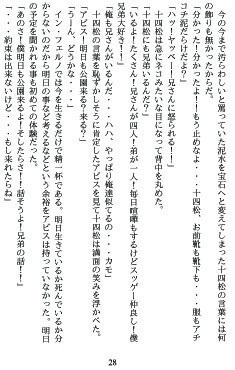 今の今まで汚らわしいと罵っていた泥水を宝石へと変えてしまった十四松の言葉には何
の飾りも無かったからだ。
「分かったよ！！もう止めなよ・・・十四松、お前靴も靴下も・・・服もアチ
コチ泥だらけだよ？」
「ハッ！ヤッベー！兄さんに怒られる！！」
十四松は急にネコみたいな目になって背中を丸めた。
「十四松にも兄弟いるんだ？」
「いるよ！たくさん！兄さんが四人！弟が一人！毎日喧嘩もするけどスッゲー仲良し！僕
兄弟大好き！！」
「俺も兄さんがいるんだ・・・ハハ、やっぱり俺達似てるの・・・カモ」
十四松の言葉を恥ずかしそうに肯定したアビスを見て十四松は満面の笑みを浮かべた。
「アビス！明日も公園来る？来る？」
「うーん、どうかな・・・」
イン・フェルノでは今を生きるだけで精一杯である。明日生きているか死んでいるか分
からないのだから明日の事など考えるなどという余裕をアビスは持っていなかった。明日
の予定を聞かれる事も初めての体験だった。
「あのさ！僕明日も公園来るよ！そしたらさ！！話そうよ！兄弟の話！！」
「・・・約束は出来ないけど・・・もし来れたらね」
28